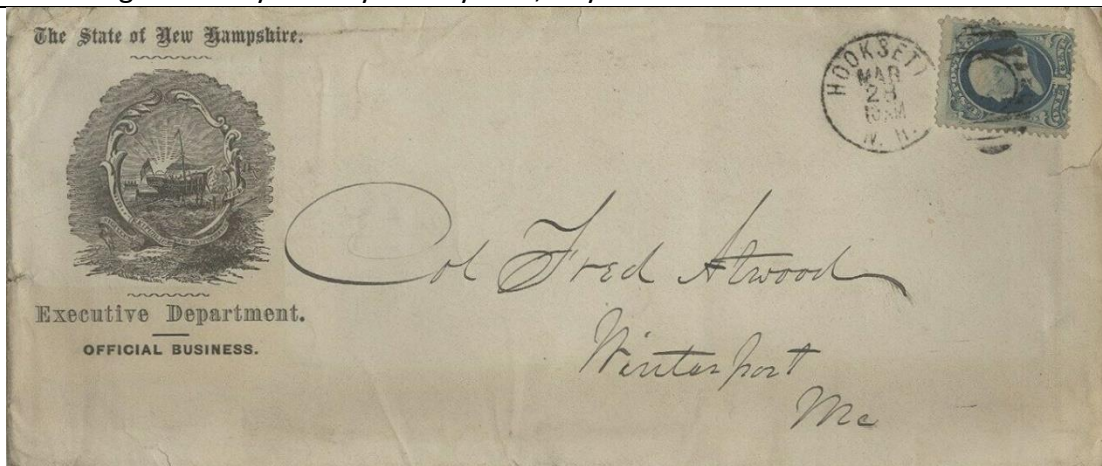 The State of New Hampshire.
Executive Department.
OFFICIAL BUSINESS.
HOOKSETT
MAR
28
10 AM
N. H.
Col Fred Atwood
Winterport
Me